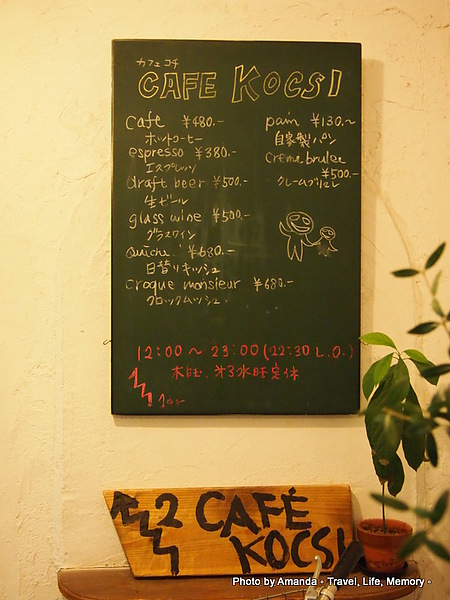 カフェ コチ
CAFE KOCSI
cafe ¥480.-
ホットコーヒー
espresso ¥380.-
エスプレッソ
draft beer ¥500.-
生ビール
glass wine ¥500.-
グラスワイン
quiche ¥680.-
日替りキッシュ
croque monsieur ¥680.-
クロックムッシュ
pain ¥130.~
自家製パン
Creme brulee
¥500.-
クレームブリュレ
12:00~23:00(22:30 L.O.)
木曜、第3水曜定休
2 CAFÉ
KOCSI
Photo by Amanda。Travel, Life, Memory。